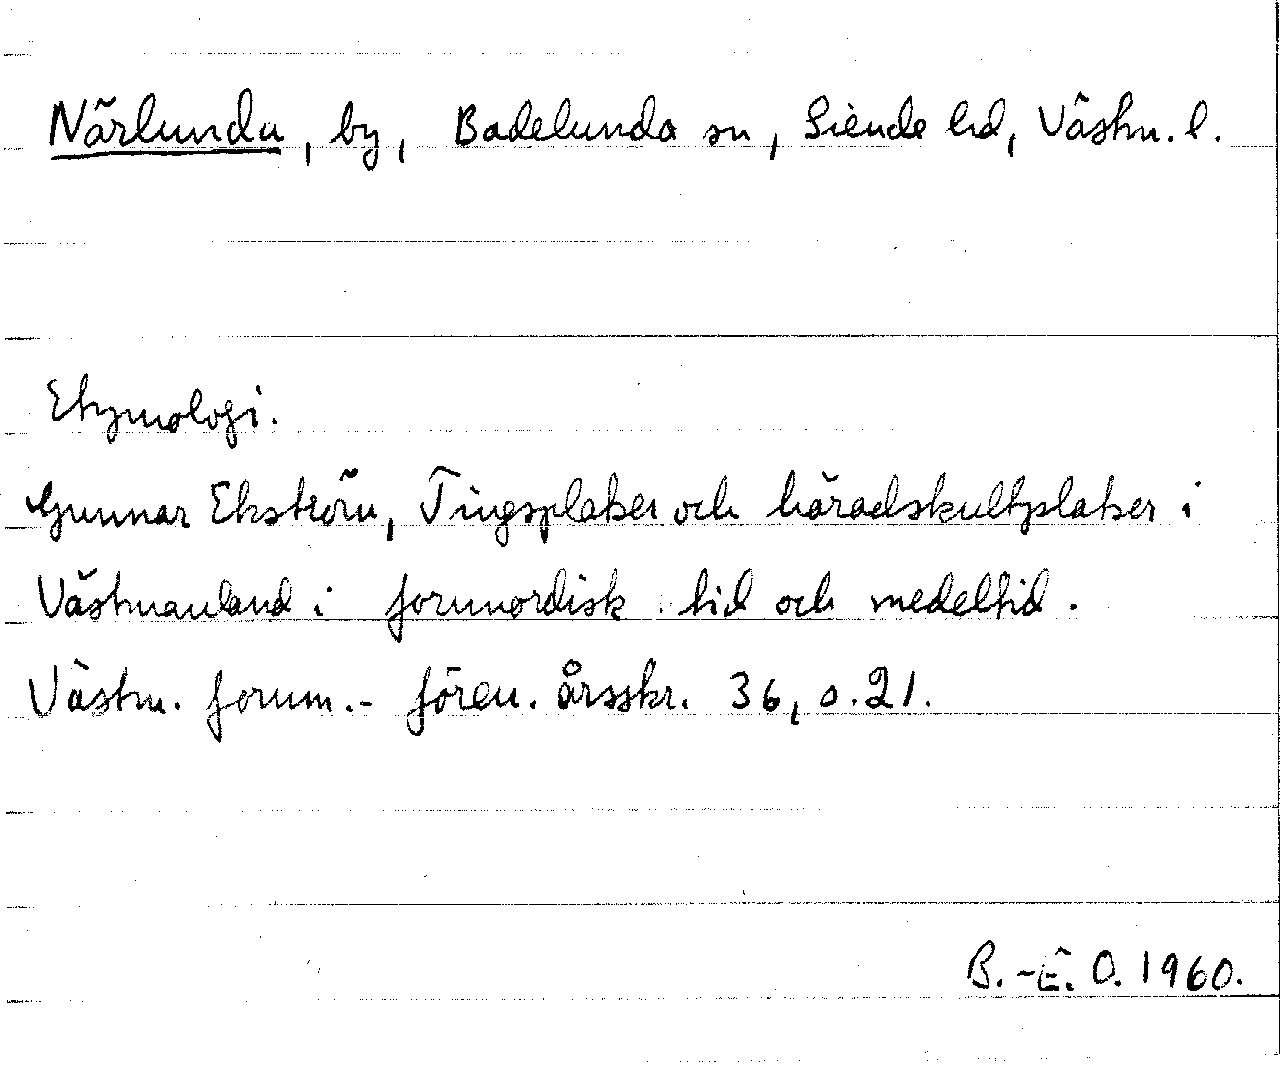 Närlunda, by, Badelunda sn, Siende hd, Västm. l.
Etymologi.
Gunnar Ekström, Tingsplatser och häradskultplatser i
Västmanland i fornnordisk tid och medeltid.
Västm. fornm.- fören. årsskr. 36, s. 21.
B.-E. O. 1960.